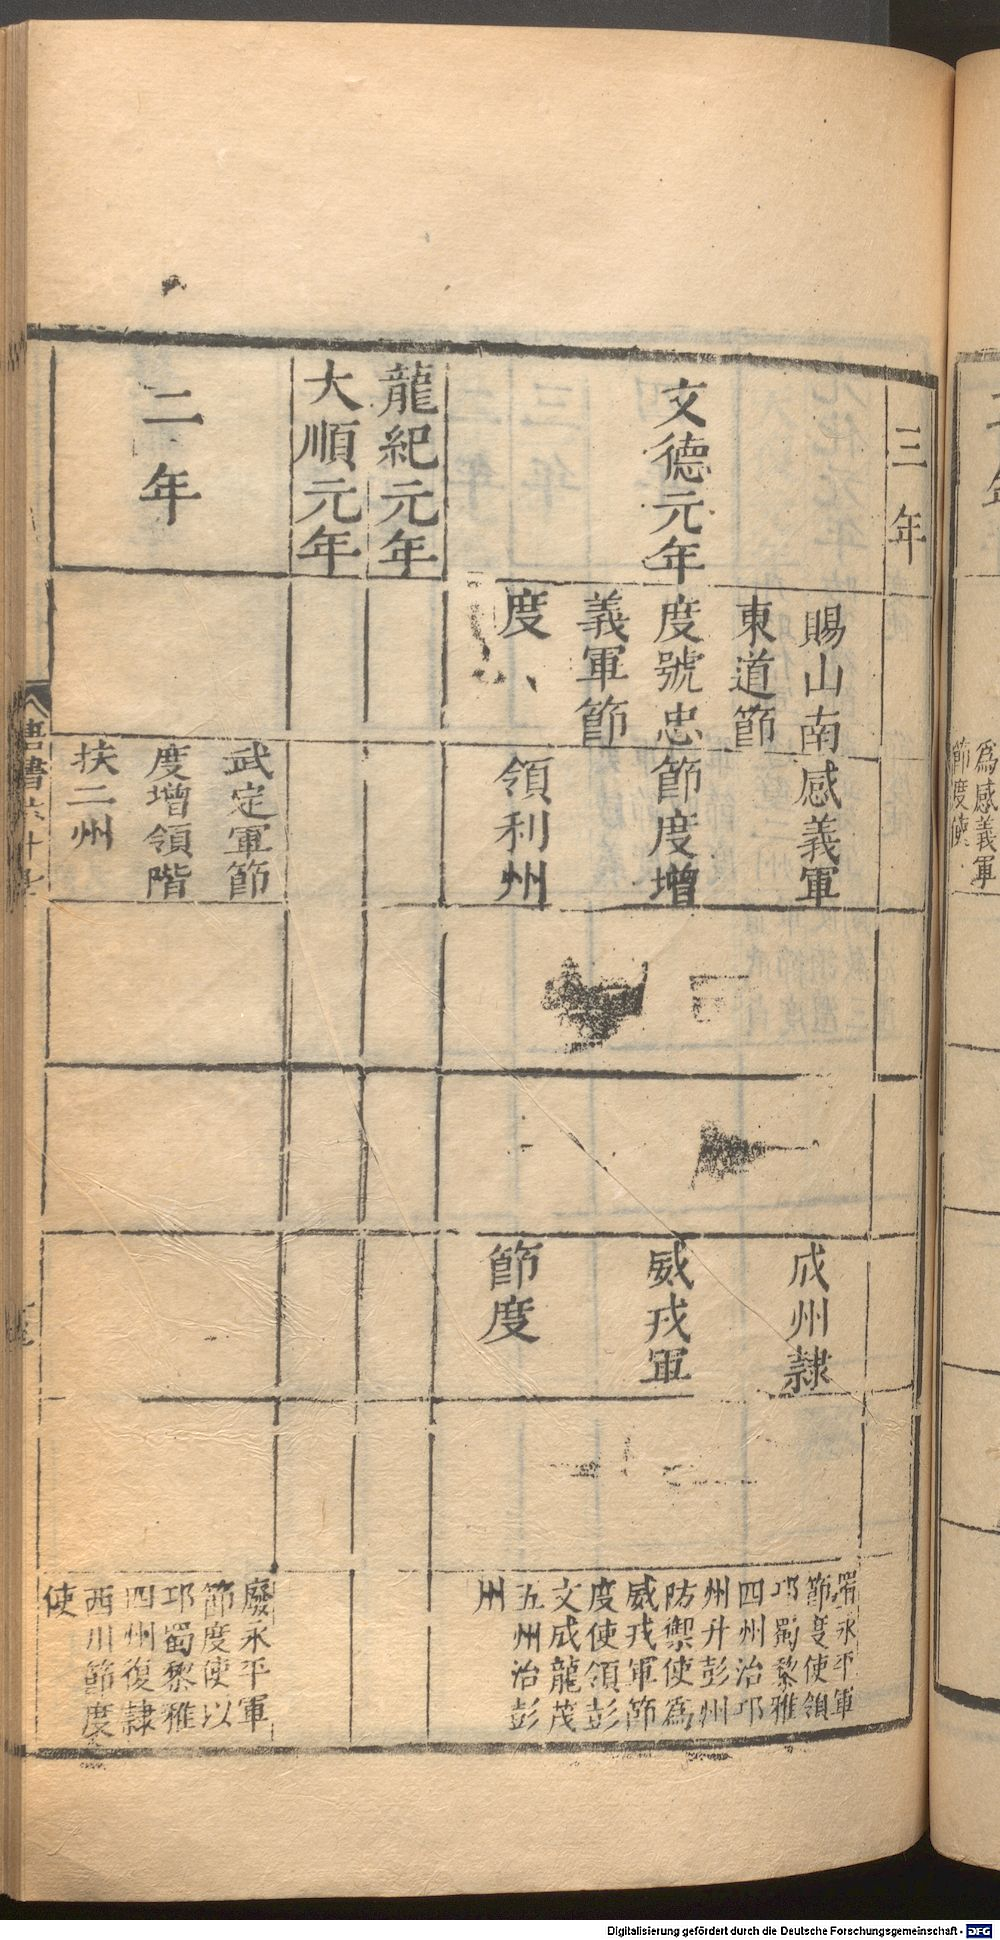 三年
文德元年
賜山南
東道節
度號忠
義軍節
度
感義軍
節度增
領利州
成州隷
威戎軍
節度
置永平軍
節度使領
邛蜀黎雅
四州治邛
州升彭州
防禦使爲
威戎軍節
度使領彭
文成龍茂
五州治彭
州
龍紀元年
大順元年
二年
武定軍節
度增領階
扶二州
廢永平軍
節度使以
邛蜀黎雅
四州復隷
西川節度
使
唐書六十七
爲感義軍
節度使
Digitalisierung gefördert durch die Deutsche Forschungsgemeinschaft - DFG